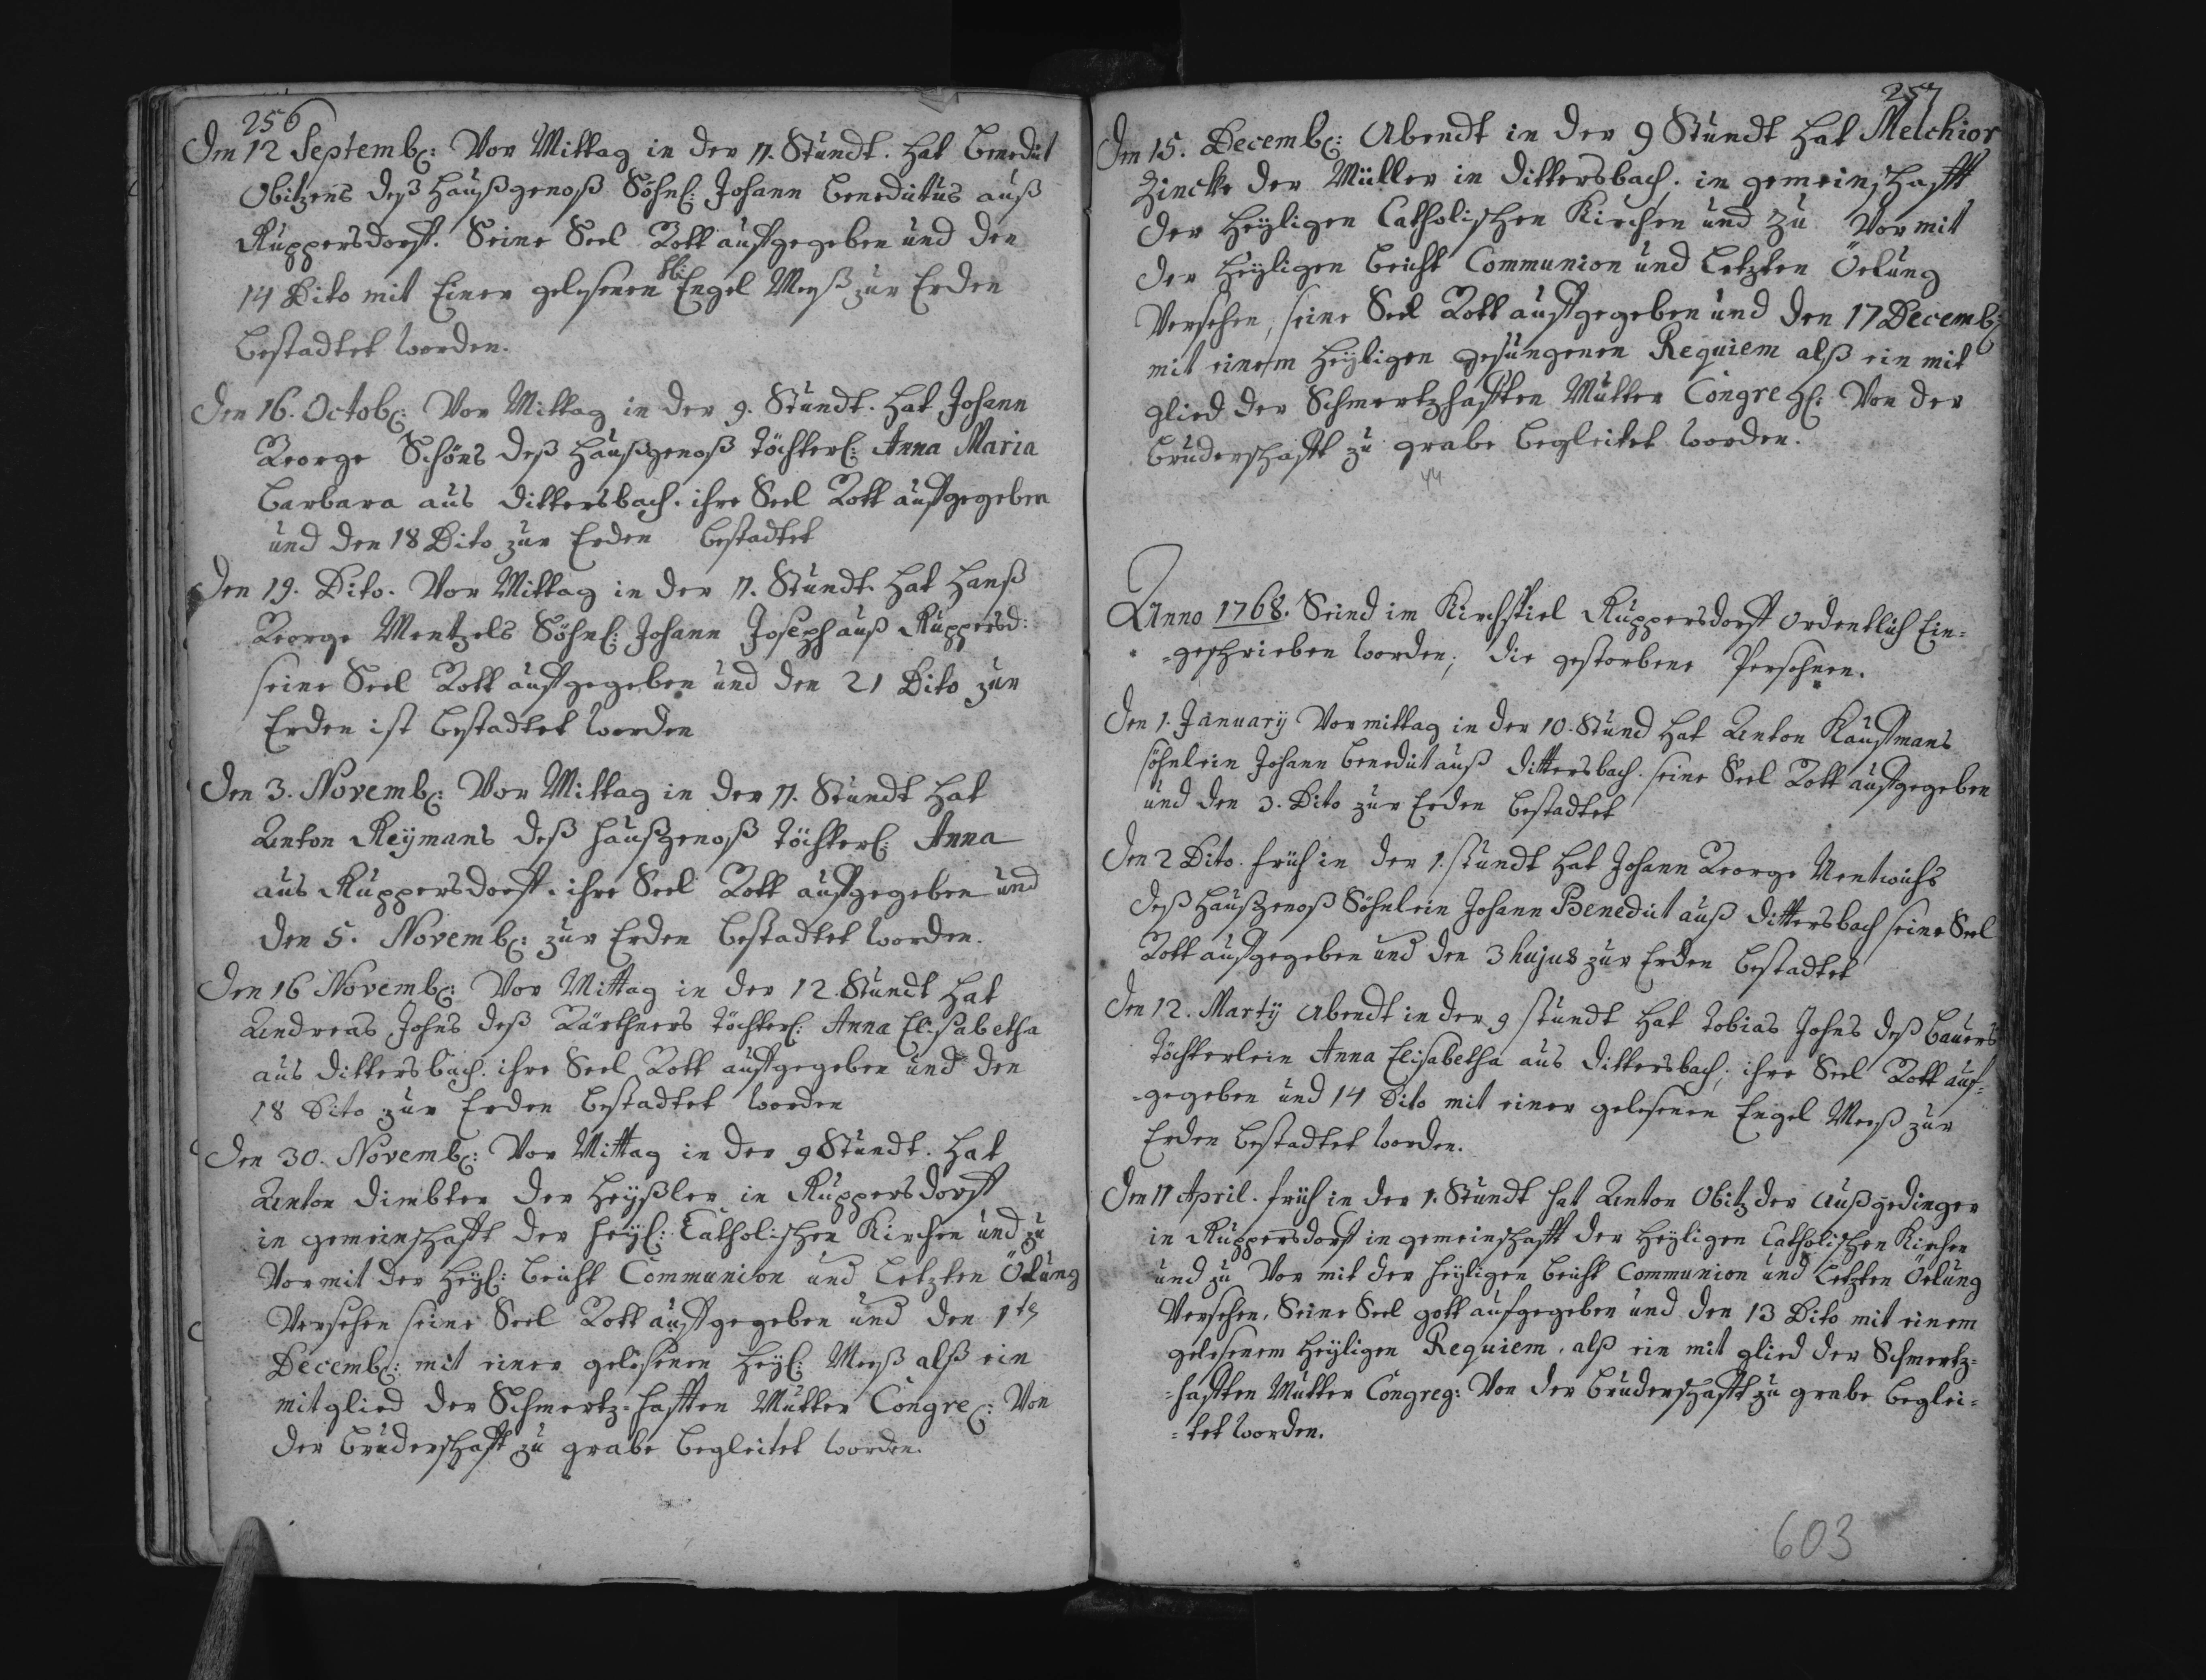 256
Den 12 Septemb: Vor Mittag in der 11. Stundt. hat Benedict
Obitzens deß Haußgenoß Söhnl: Johann Benedictus auß
Ruppersdorff. Seine Seel Gott auffgegeben und den
14 Dito mit Einer gelesenen Engel Meeß zur Erden
bestadtet worden.
Den 16. Octob: Vor Mittag in der 9. Stundt. hat Johann
George Schöns deß Haußgenoß Töchterl: Anna Maria
Barbara aus Dittersbach. ihre Seel Gott auffgegeben
und den 18 Dito zur Erden bestadtet
Den 19. Dito. Vor Mittag in der 11. Stundt hat Hanß
George Mentzels Söhnl: Johann Joseph auß Ruppersd:
seine Seel Gott auffgegeben und den 21 Dito zur
Erden ist bestadtet worden
Den 3. Novemb: Vor Mittag in der 11. Stundt hat
Anton Reÿmans deß Haußgenoß Töchterl: Anna
aus Ruppersdorff. ihre Seel Gott auffgegeben und
den 5. Novemb: zur Erden bestadtet worden.
Den 16 Novemb: Vor Mittag in der 12. Stundt hat
Andreas Johns deß Gärthners Töchterl: Anna Elisabetha
aus Dittersbach. ihre Seel Gott auffgegeben und den
18 Dito zur Erden bestadtet worden
Den 30. Novemb: Vor Mittag in der 9 Stundt. hat
Anton Dimbter der Heÿßler in Ruppersdorff
in gemeinschafft der heÿl: Catholischen Kirchen und zu
Vor mit der Heÿl: beicht Communion und Letzten Öelung
Versehen seine Seel Gott auffgegeben und den 1ts
Decemb: mit einer gelesenen Heÿl: Meeß alß ein
mitglied der Schmertz-hafften Mutter Congre: Von
der bruderschafft zu grabe begleitet worden.
257
Den 15. Decemb: Abendt in der 9 Stundt hat Melchior
Zincke der Müller in Dittersbach. in gemeinschafft
der Heÿligen Catholischen Kirchen und zu Vor mit
der Heÿligen beicht Communion und Letzten Öelung
Versehen, seine Seel Gott auffgegeben und den 17 Decemb:
mit einem Heÿligen gesungenen Requiem alß ein mit
glied der Schmertzhafften Mutter Congreg: Von der
bruderschafft zu grabe begleitet worden.
44
Anno 1768. Seind im Kirchspiel Ruppersdorff ordentlich Ein=
=geschrieben worden; die gestorbene Persohnen.
Den 1. January Vormittag in der 10. Stund hat Anton Kauffmans
söhnlein Johann Benedict auß Dittersbach. seine Seel Gott auffgegeben
und den 3. Dito zur Erden bestadtet
Den 2 Dito. früh in der 1. stundt hat Johann George Mentwichs
deß Haußgenoß Söhnlein Johann Benedict auß Dittersbach seine Seel
Gott auffgegeben und den 3 hujus zur Erden bestadtet
Den 12. Martÿ Abendt in der 9 stundt hat Tobias Johns deß bauers
Töchterlein Anna Elisabetha aus Dittersbach; ihre Seel Gott auf=
=gegeben und 14 Dito mit einer gelesenen Engel Meeß zur
Erden bestadtet worden.
Den 11 April. früh in der 1. Stundt hat Anton Obitz der Außgedinger
in Ruppersdorff in gemeinschafft der Heÿligen Catholischen Kirchen
und zu Vor mit der heÿligen beicht Communion und Letzten Öelung
Versehen. Seine Seel gott aufgegeben und den 13 Dito mit einem
gelesenem Heÿligen Requiem. alß ein mit glied der Schmertz=
=hafften Mutter Congreg: Von der bruderschafft zu grabe beglei=
=tet worden.
603